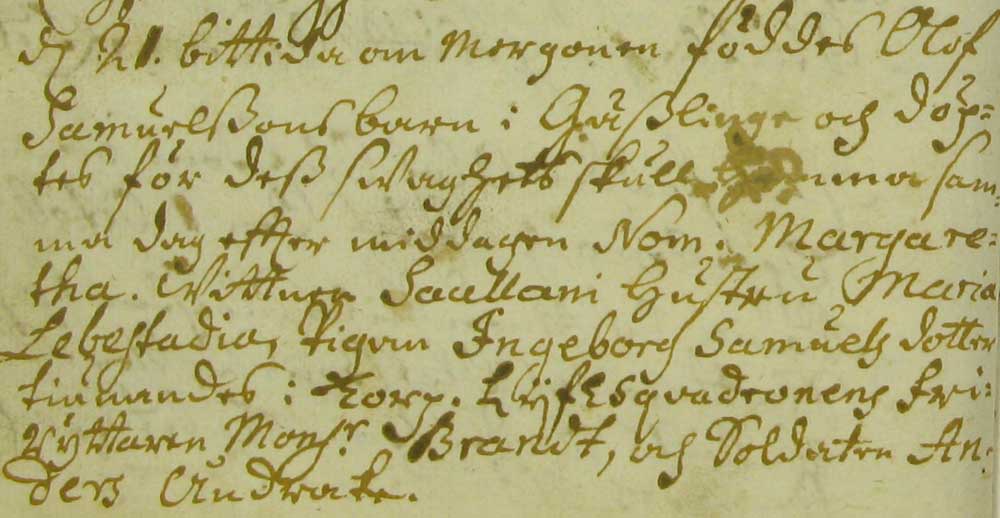 d. 21. bittida om Morgonen föddes Olof
Samuelßons barn i Gäßlinge och döp=
tes för deß swaghets skull hemma sam
ma dag efter middagen Nom. Margare=
tha. Wittnen Hustru Maria
Pigan Ingeborg Samuels dotter
tienandes i Torp. LijfEsquadronens fri=
ryttaren Monsr. Brandt, och Soldaten An=
ders